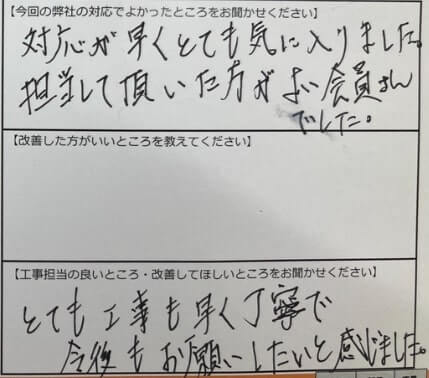 【今回の弊社の対応でよかったところをお聞かせください】
対応が早くとても気に入りました。
担当して頂いた方がよい会員さん
でした。
【改善した方がいいところを教えてください】
【工事担当の良いところ・改善してほしいところをお聞かせください】
とても工事も早く丁寧で
今後もお願いしたいと感じました。